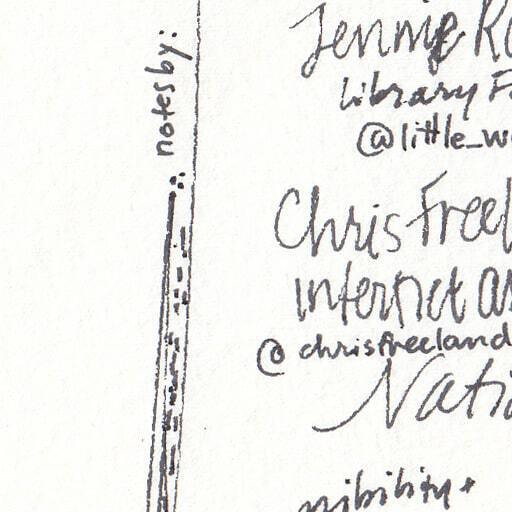 notes by:
Jennie R
Library F
@little_w
Chris Freel
Internet a
@chrisfreeland
Nati